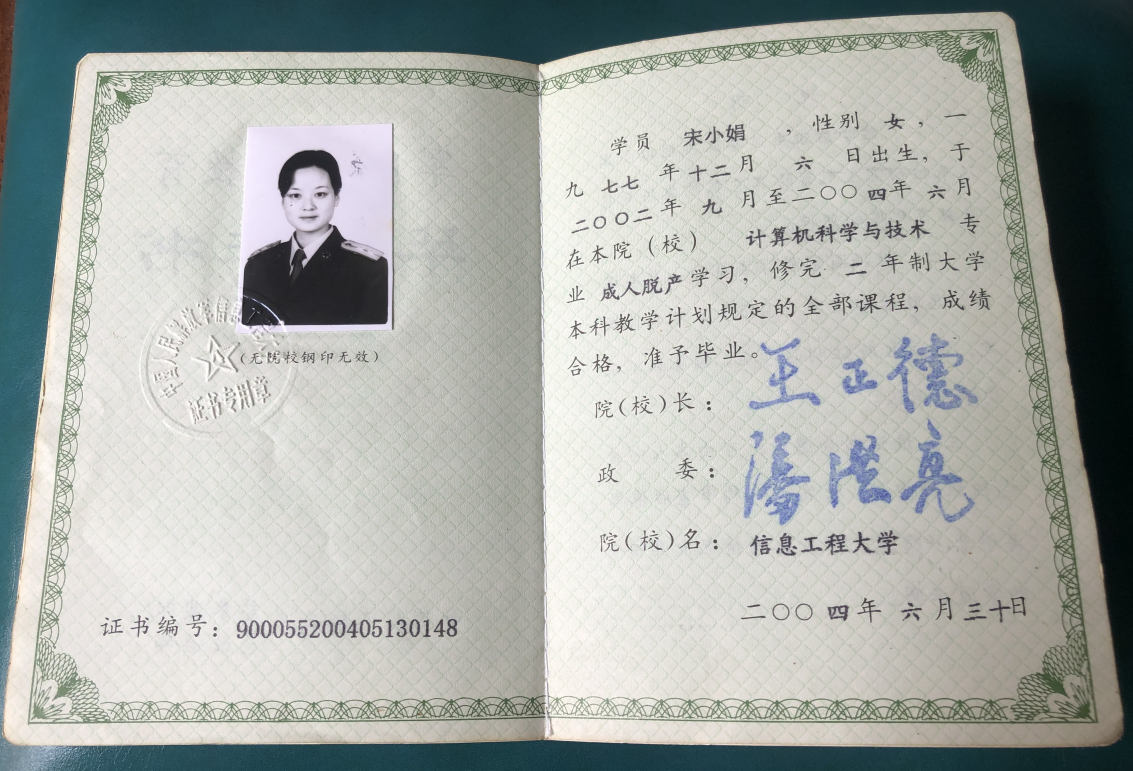 中国人民解放军信息工程大学
证书专用章
(无院校钢印无效)
证书编号：900055200405130148
学员 宋小娟 ，性别 女，一
九 七七 年十二月 六 日出生，于
二〇〇二年 九 月至二〇〇四年 六月
在本院（校） 计算机科学与技术 专
业 成人脱产学习，修完 二 年制大学
本科教学计划规定的全部课程，成绩
合格，准予毕业。
院(校)长： 王正德
政 委： 潘洪亮
院(校)名： 信息工程大学
二〇〇四年 六月三十日